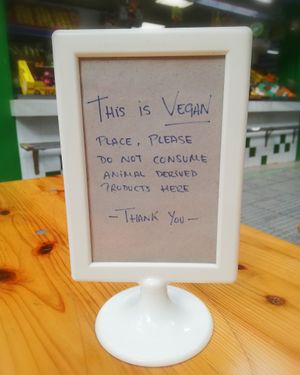 THIS IS VEGAN
PLACE, PLEASE
DO NOT CONSUME
ANIMAL DERIVED
PRODUCTS HERE
- THANK YOU -